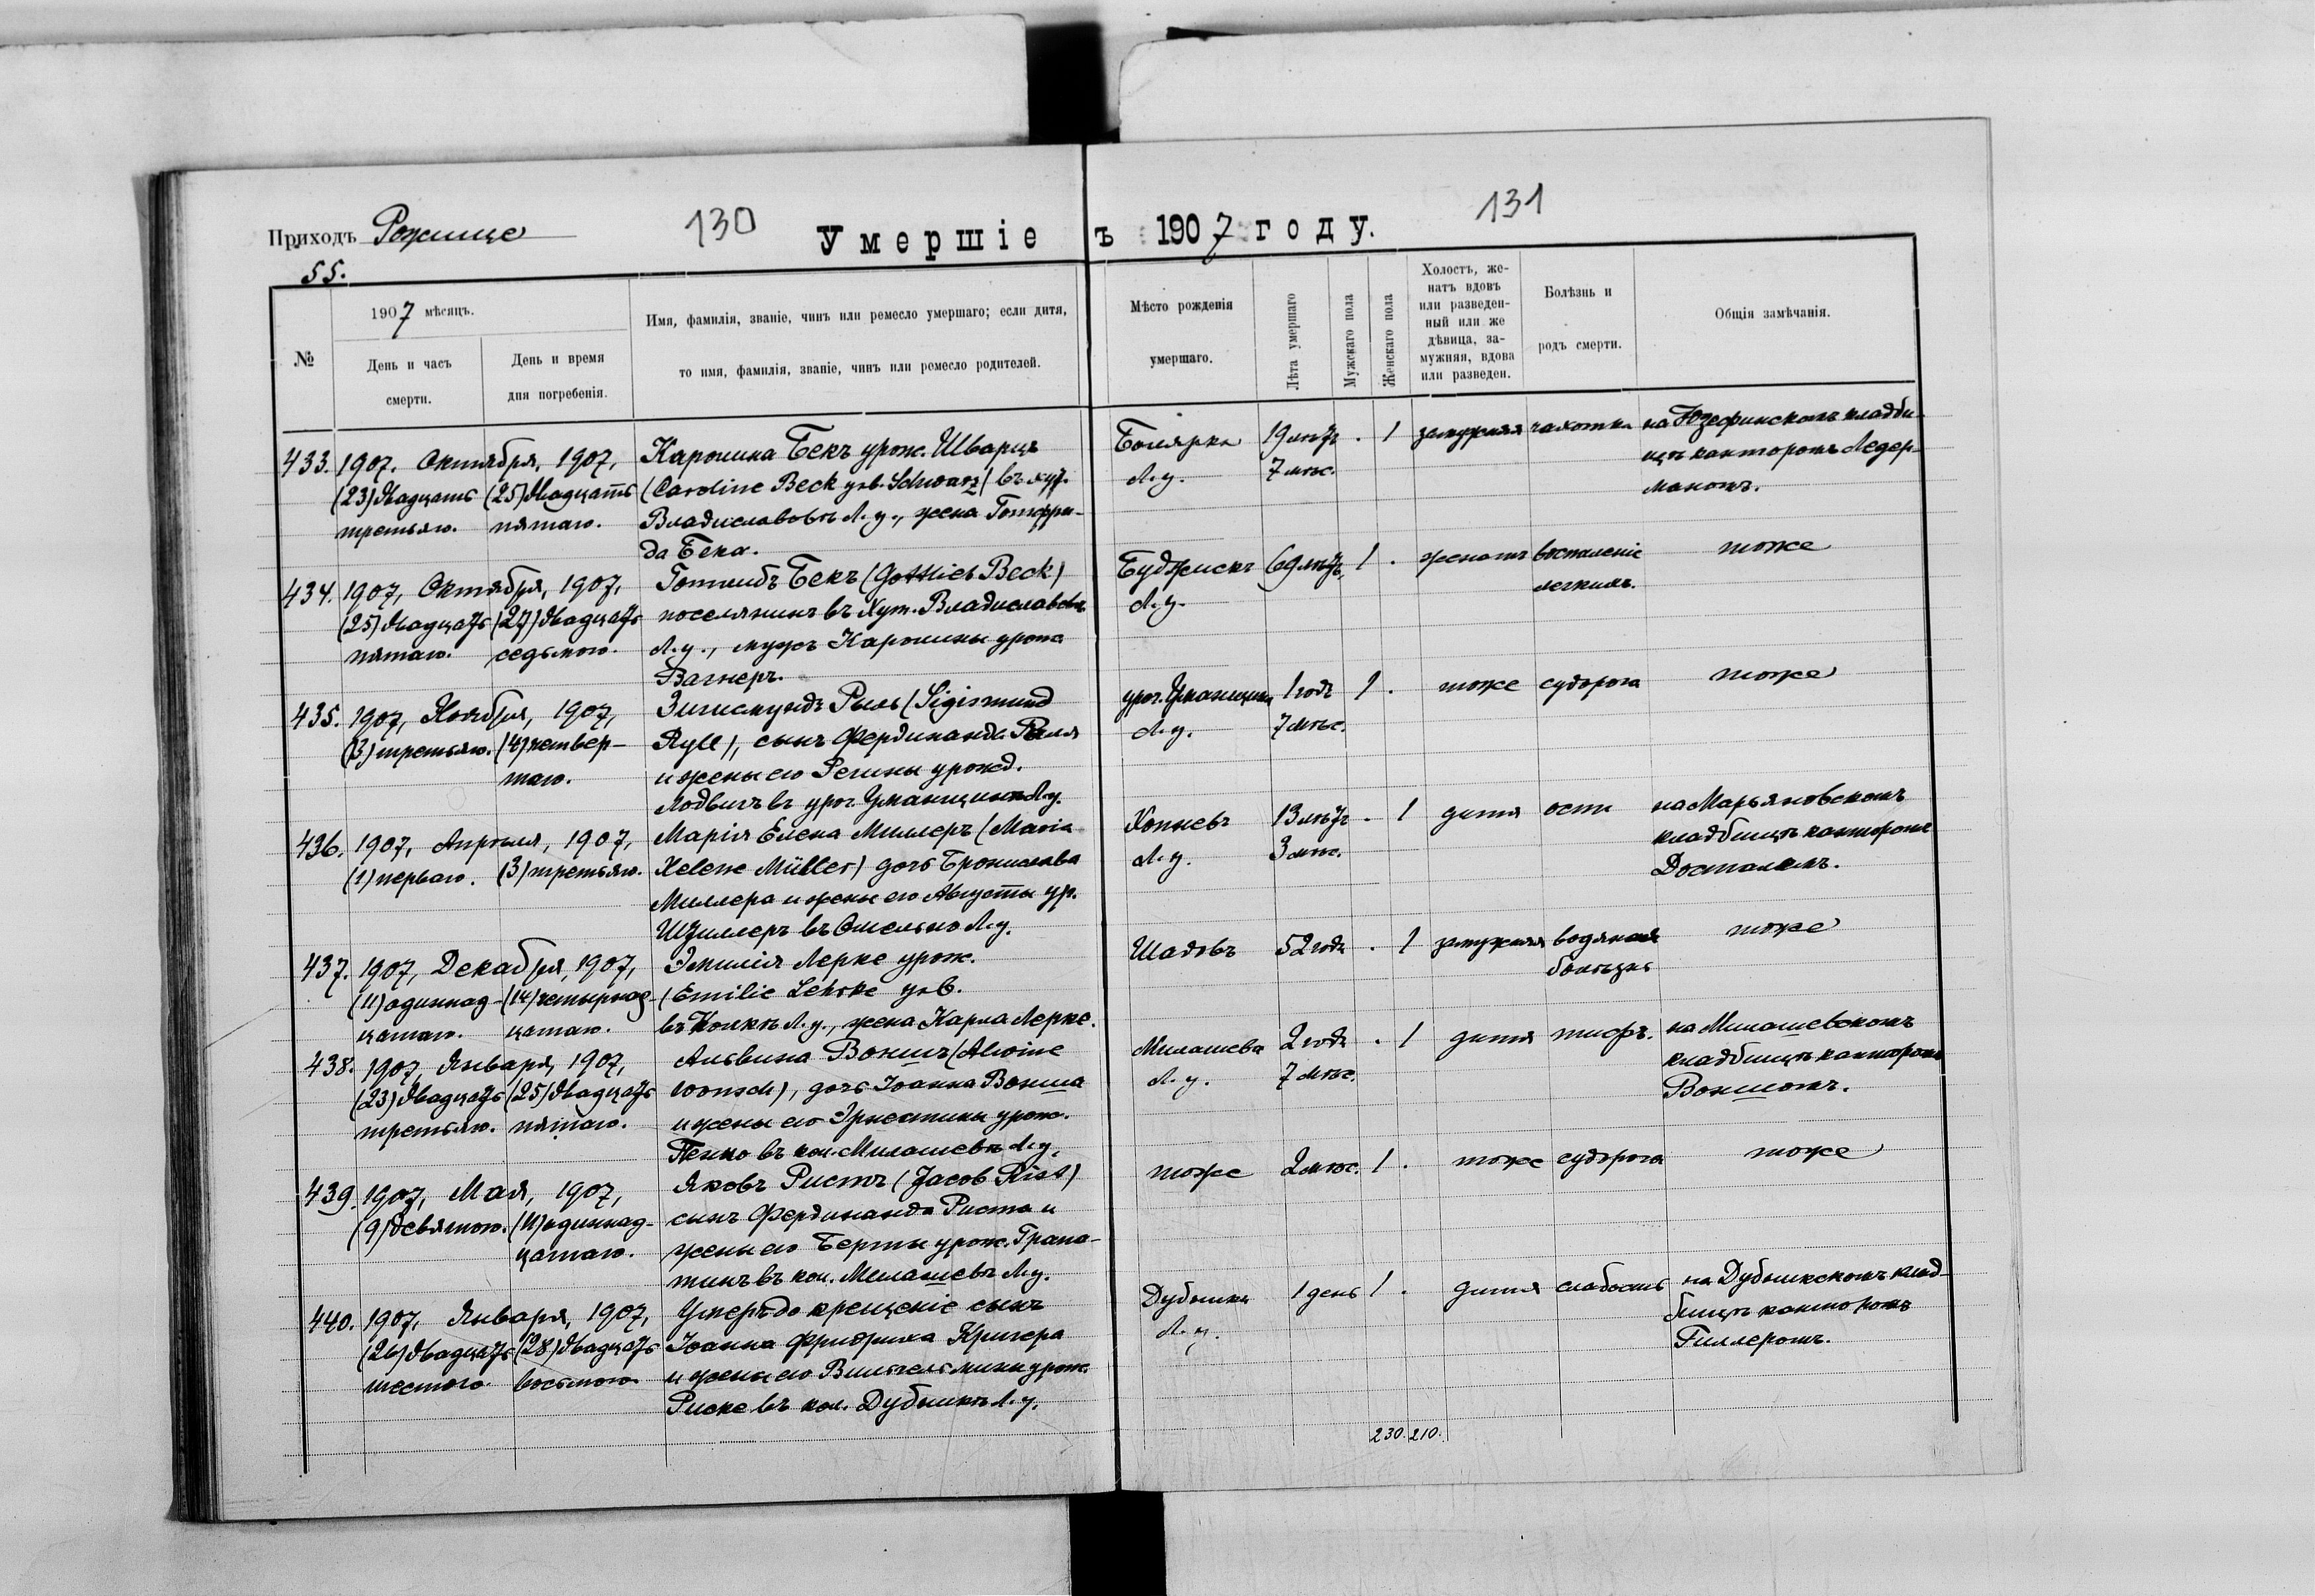 Приходъ Рожище
130
131
Умершіе ъ 1907 году.
55.
№
1907 мѣсяцъ.
День и часъ
смерти.
День и время
дня погребенія.
Имя, фамилія, званіе, чинъ или ремесло умершаго; если дитя,
то имя, фамилія, званіе, чинъ или ремесло родителей.
Мѣсто рожденія
умершаго.
Лѣта умершаго
Мужскаго пола
Женскаго пола
Холостъ, же-
натъ вдовъ
или разведен-
ный или же
дѣвица, за-
мужняя, вдова
или разведен.
Болѣзнь и
родъ смерти.
Общія замѣчанія.
433. 1907. Октября, 1907,
(23) двадцать (25) двадцать
третьяго. пятаго.
Каролина Бекъ урож. Шварцъ
(Caroline Beck geb. Schwarz) въ хут.
Владиславовкѣ Л.у., жена Готфри-
да Бека.
Боярка 19 лѣтъ . 1 замужняя чахотка на Юзефинскомъ кладби-
Л.у. 7 мѣс. щѣ канторомъ Ледер-
маномъ.
434. 1907, Октября, 1907,
(25) двадцать (27) двадцать
пятаго. седьмого.
Готлибъ Бекъ (Gottlieb Beck)
поселянинъ въ хут. Владиславовкѣ
Л.у., мужъ Каролины урож.
Вагнеръ.
69 лѣтъ, 1 . женатъ воспаленіе тоже
Л.у. легкихъ.
435. 1907, Ноября, 1907,
(3) третьяго. (4) четвер-
таго.
Зигисмундъ Рыль (Sigismund
Ryll), сынъ Фердинанда Рыля
и жены его Регины урожд.
Лодвигъ въ уроч. Уманщинѣ Л.у.
уроч. Уманщина 1 годъ 1 . тоже судорога тоже
Л.у. 7 мѣс.
436. 1907, Апрѣля, 1907,
(1) перваго. (3) третьяго.
Марія Елена Миллеръ (Maria
Helene Müller) дочь Бронислава
Миллера и жены его Августы ур.
въ Омельно Л.у.
Копчевъ 13 лѣтъ . 1 дитя оспа на Марьяновскомъ
Л.у. 3 мѣс. кладбищѣ канторомъ
Досталемъ.
437. 1907, Декабря, 1907,
(11) одиннад- (14) четырнад-
цатаго. цатаго.
Эмилія Лерке урож.
(Emilie Lehrke geb.
въ Колкѣ Л.у., жена Карла Лерке.
Шадовъ 52 года . 1 замужняя водяная тоже
болѣзнь
438. 1907, Января, 1907,
(23) двадцать (25) двадцать
третьяго. пятаго.
Альвина Воншъ (Alwine
Wonsch), дочь Іоанна Вонша
и жены его Эрнестины урож.
Пенно въ кол. Милашевѣ Л.у.
Милашева 2 года . 1 дитя тифъ. на Милашевскомъ
Л.у. 7 мѣс. кладбищѣ канторомъ
Воншомъ.
439. 1907, Мая, 1907,
(9) девятого. (11) одиннад-
цатаго.
Яковъ Ристъ (Jacob Rist)
сынъ Фердинанда Риста и
жены его Берты урож. Грапа-
тинъ въ кол. Милашевѣ Л.у.
тоже 2 мѣс. 1 . тоже судорога тоже
440. 1907, Января, 1907,
(26) двадцать (28) двадцать
шестого восьмого
Умеръ до крещеніе сынъ
Іоанна Фридриха Кригера
и жены его Вильгельмины урож.
Риске въ кол. Дубинкѣ Л.у.
1 день 1 . дитя слабость на Дубникскомъ клад-
Л.у. бищѣ канторомъ
Гиллеромъ.
230. 210.